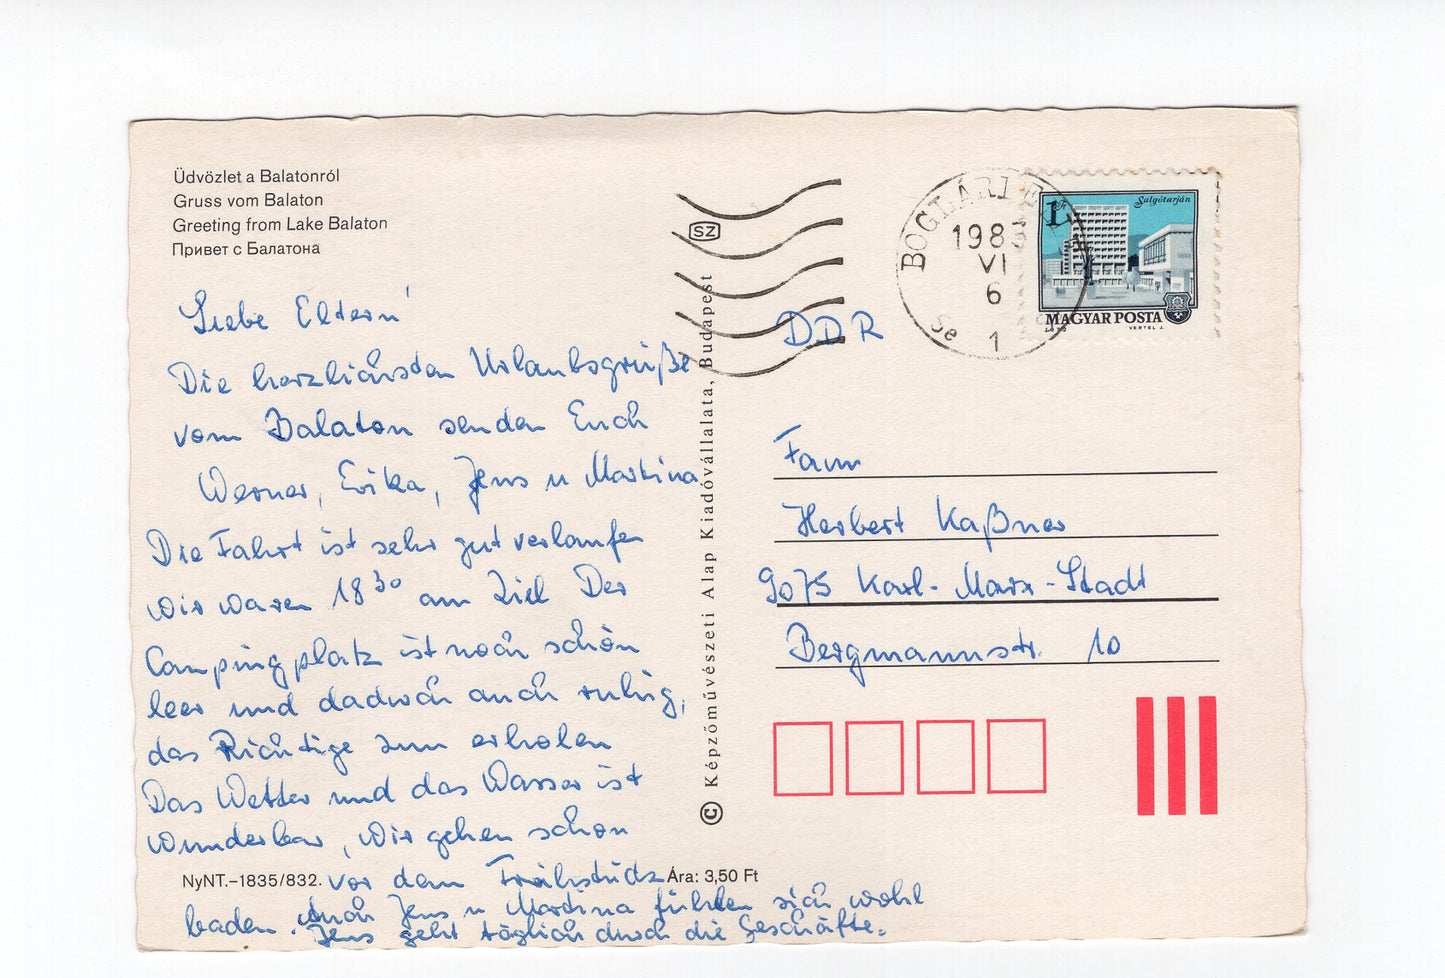 Üdvözlet a Balatonról
Gruss vom Balaton
Greeting from Lake Balaton
Привет с Балатона
Liebe Eltern!
Die herzlichsten Urlaubsgrüße
vom Balaton senden Euch
Werner, Erika, Jens u Martina
Die Fahrt ist sehr gut verlaufen
wir waren 18 30 am Ziel Der
Campingplatz ist noch schön
leer und dadurch auch ruhig,
das Richtige zum erholen
Das Wetter und das Wasser ist
wunderbar, wir gehen schon
vor dem Frühstück
baden. Auch Jens u Martina fühlen sich wohl
Jens geht täglich durch die Geschäfte.
NyNT.–1835/832.
Ára: 3,50 Ft
© Képzőművészeti Alap Kiadóvállalata, Budapest
SZ
BOGLÁRLELLE
1983
VI
6
1
1 Ft
Salgótarján
MAGYAR POSTA
VERTEL J.
DDR
Fam
Herbert Kaßner
9075 Karl-Marx-Stadt
Bergmannstr. 10